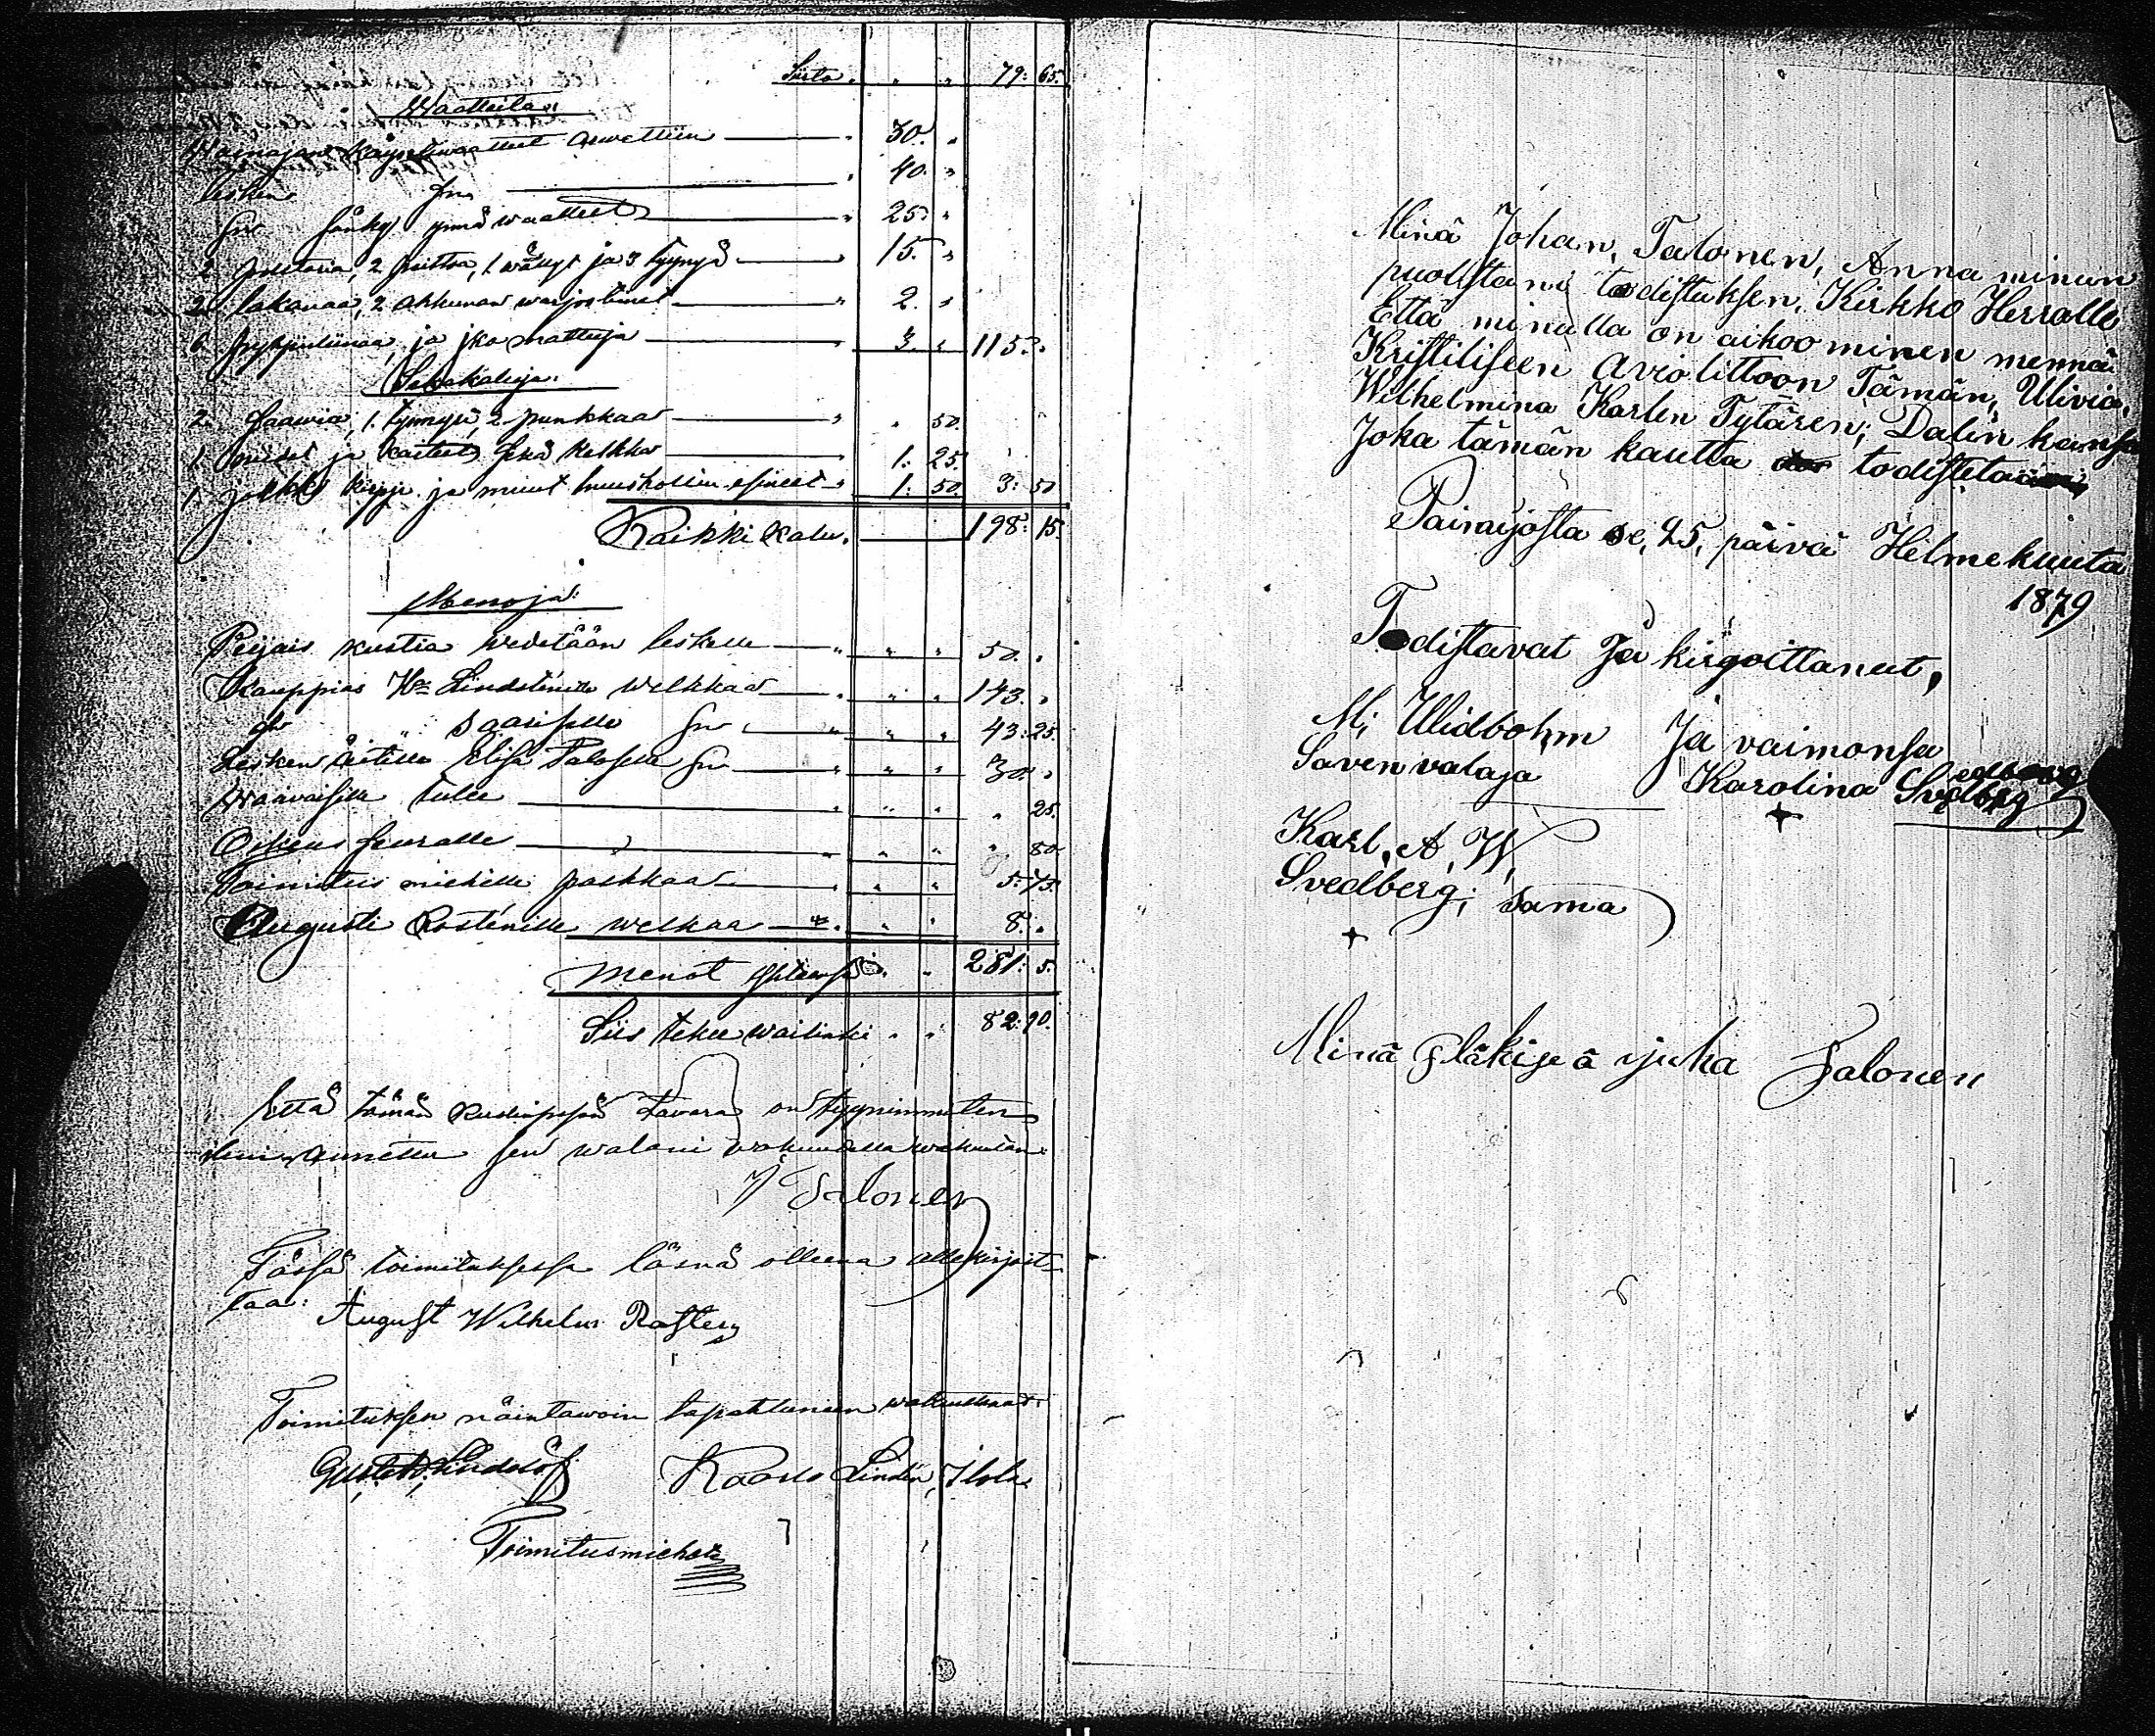 Siirto " " 79: 65.
Waatteita:
Wainajan käyntiwaatteet arwattiin — " 30. "
lesken fru — " 40. "
fru sänky ynnä waatteet — " 25. "
2 polstaria, 2 peittoa, 1 wällyt ja 3 tyynyä — " 15. "
2 lakanaa, 2 akkunan warjostimet — " 2. "
6 pyhjinliinaa, ja jko mattuja — " 3. " 115. "
Sekakaluja:
2 saawia, 1. tynnyri, 2 punkkaa — " " 50.
1 ja kaiteet sekä kelkka — " 1: 25.
1 kirje ja muut huuskollin esineet — " 1: 50. 3: 50
Kaikki kalu. — 198: 15.
Menoja:
Peijais kustia wedetään leskelle — " " " 50. "
Kauppias Hra Lindsténille welkkaa — " " " 143. "
" Saariselle fru — " " " 43: 25.
Lesken äitille Elisa Taloselle fru — " " " 30. "
Waiwaisille tulee — " " " " 25.
Oikeus seuralle — " " " " 80.
Toimitus miehille palkkaa — " " " 5: 75.
Augusti Rosténille welkaa — " " " 8. "
Menot yhteensä " " 281: 5.
Siis tekee wailinki " " 82: 90.
Että tämän tavara on tyynimmiten
ilmi annettu sen walani wakuudella wakuutan:
J Talonen
Tässä toimituksessa läsnä olleena allekirjoit-
taa:
August Wilhelm Rosten
Toimituksen näintawoin tapahtuneen wakuuttaat:
Gustaf Lindelöf Kaarlo Lindén, Ilola
Toimitusmiehet
Minä Johan, Talonen, Anna minun
puolstani todistuksen, Kirkko Herralle
Että minulla on aikoominen mennä
Kristiliseen Aviolittoon Tämän, Ulivia,
Wilhelmina Karlen Tytären; Dalin kansa
Joka tämän kautta todistetaan
Painaijosta se, 25, päivä Helmekuuta
1879
Todistavat Ja kirgoittanut,
M; Widbohm Ja vaimonsa
Saven valaja Karolina Svedberg
Karl, A, W,
Svedberg; sama
Minä juha Talonen